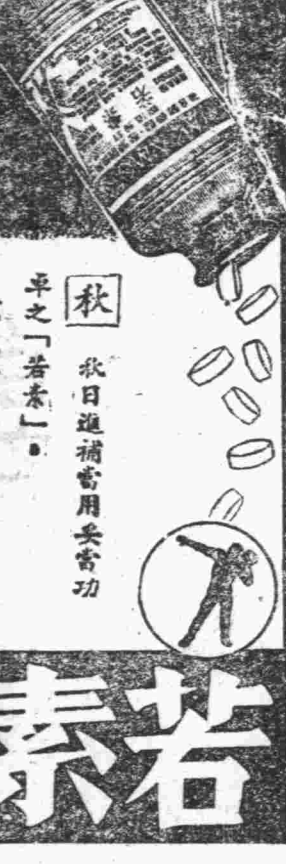 秋
秋日進補當用妥當功
卓之「若素」。
若素
若素